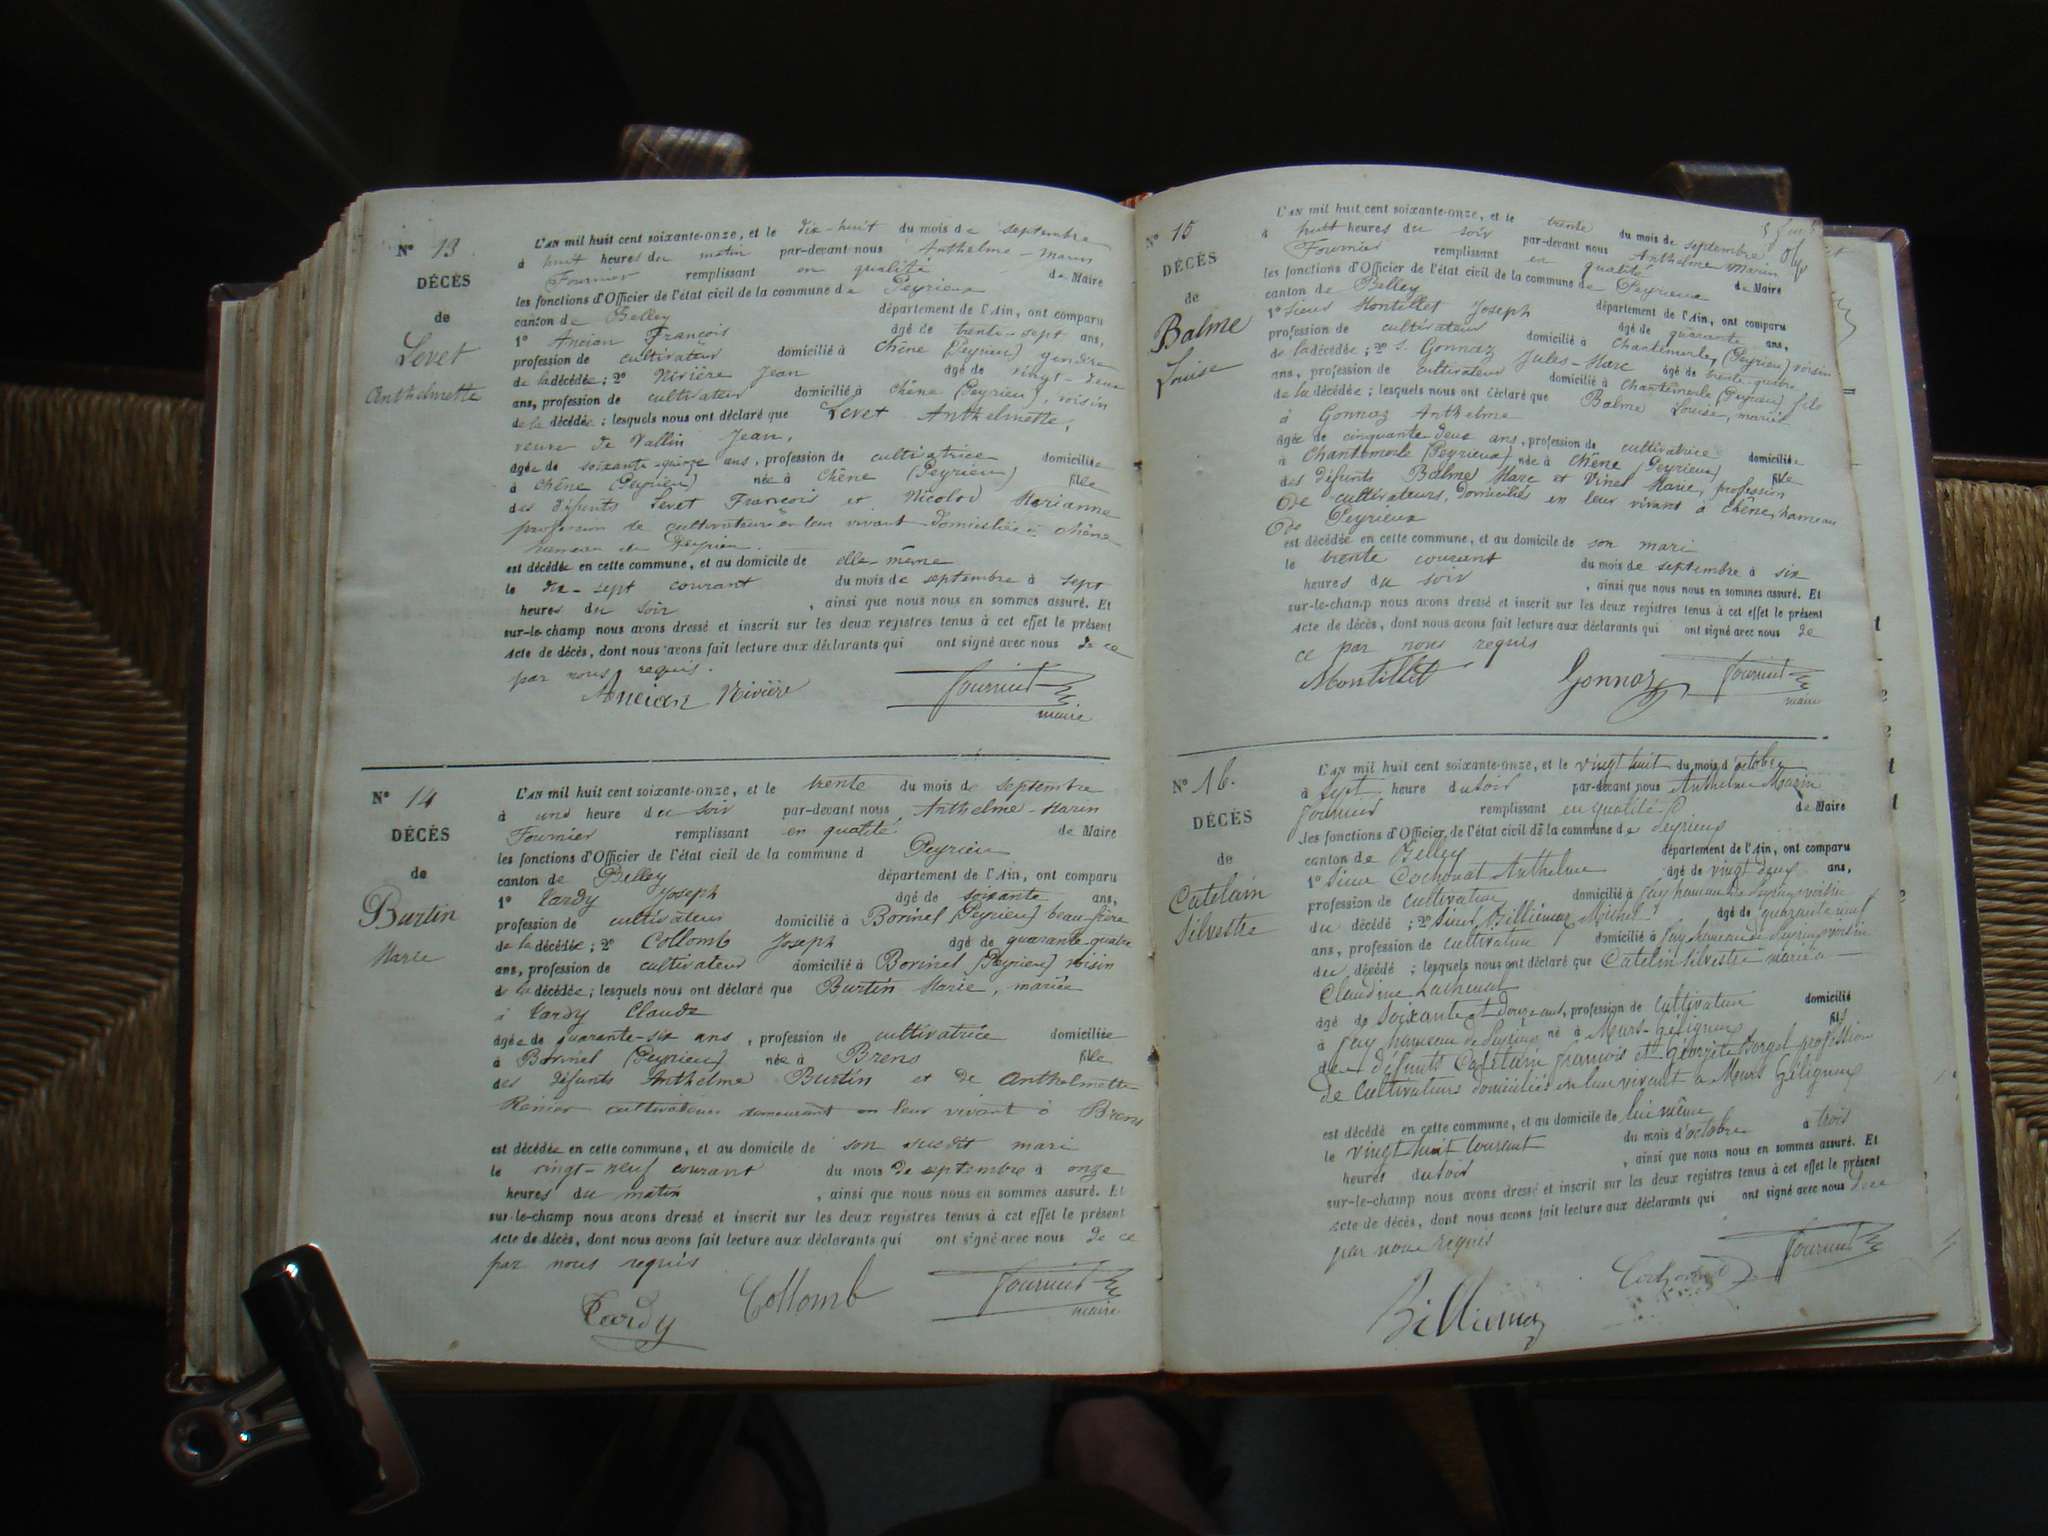 N° 13
DÉCÈS
de
Levet
Anthelmette
L'AN mil huit cent soixante-onze, et le dix-huit du mois de septembre
à huit heures du matin par-devant nous Anthelme-Marin
Fournier remplissant en qualité de Maire
les fonctions d'Officier de l'état civil de la commune de Peyrieux
canton de Belley département de l'Ain, ont comparu
1° Ancian François âgé de trente-sept ans,
profession de cultivateur domicilié à Chêne (Peyrieu) gendre
de la décédée ; 2° Rivière Jean âgé de vingt-deux
ans, profession de cultivateur domicilié à Chêne (Peyrieu), voisin
de la décédée ; lesquels nous ont déclaré que Levet Anthelmette,
veuve de Vallin Jean,
âgée de soixante-quinze ans, profession de cultivatrice domiciliée
à Chêne (Peyrieu) née à Chêne (Peyrieu) fille
des défunts Levet François et Nicolod Marianne
profession de cultivateurs en leur vivant domiciliés à Chêne
hameau de Peyrieu.
est décédée en cette commune, et au domicile de elle-même
le dix-sept courant du mois de septembre à sept
heures du soir , ainsi que nous nous en sommes assuré. Et
sur-le-champ nous avons dressé et inscrit sur les deux registres tenus à cet effet le présent
acte de décès, dont nous avons fait lecture aux déclarants qui ont signé avec nous de ce
par nous requis.
Ancian Rivière Fournier
maire
N° 14
DÉCÈS
de
Burtin
Marie
L'AN mil huit cent soixante-onze, et le trente du mois de septembre
à une heure du soir par-devant nous Anthelme-Marin
Fournier remplissant en qualité de Maire
les fonctions d'Officier de l'état civil de la commune d Peyrieu
canton de Belley département de l'Ain, ont comparu
1° Tardy Joseph âgé de soixante ans,
profession de cultivateur domicilié à Borinel (Peyrieu) beau-frère
de la décédée ; 2° Collomb Joseph âgé de quarante-quatre
ans, profession de cultivateur domicilié à Borinel (Peyrieu) voisin
de la décédée ; lesquels nous ont déclaré que Burtin Marie, mariée
à Tardy Claude
âgée de quarante-six ans , profession de cultivatrice domiciliée
à Borinel (Peyrieu) née à Brens fille
des défunts Anthelme Burtin et de Anthelmette
cultivateurs demeurant en leur vivant à Brens
est décédée en cette commune, et au domicile de son susdit mari
le vingt-neuf courant du mois de septembre à onze
heures du matin , ainsi que nous nous en sommes assuré. Et
sur-le-champ nous avons dressé et inscrit sur les deux registres tenus à cet effet le présent
acte de décès, dont nous avons fait lecture aux déclarants qui ont signé avec nous de ce
par nous requis
Tardy Collomb Fournier
maire
N° 15
DÉCÈS
de
Balme
Louise
L'AN mil huit cent soixante-onze, et le trente du mois de septembre
à huit heures du soir par-devant nous Anthelme Marin
Fournier remplissant en qualité de Maire
les fonctions d'Officier de l'état civil de la commune de Peyrieux
canton de Belley département de l'Ain, ont comparu
1° Sieur Montillet Joseph âgé de quarante ans,
profession de cultivateur domicilié à Chantemerle, (Peyrieu) voisin
de la décédée ; 2° S. Gonnaz Jules-Marc âgé de trente-quatre
ans, profession de cultivateur domicilié à Chantemerle (Peyrieu) fils
de la décédée ; lesquels nous ont déclaré que Balme Louise, mariée
à Gonnaz Anthelme
âgée de cinquante deux ans, profession de cultivatrice domiciliée
à Chantemerle (Peyrieux) née à Chêne (Peyrieux) fille
des défunts Balme Marc et Vinel Marie, profession
de cultivateurs, domiciliés en leur vivant à Chêne, hameau
de Peyrieux
est décédée en cette commune, et au domicile de son mari
le trente courant du mois de septembre à six
heures du soir , ainsi que nous nous en sommes assuré. Et
sur-le-champ nous avons dressé et inscrit sur les deux registres tenus à cet effet le présent
acte de décès, dont nous avons fait lecture aux déclarants qui ont signé avec nous de
ce par nous requis
Montillet Gonnaz Fournier
maire
N° 16.
DÉCÈS
de
Catelain
Silvestre
L'AN mil huit cent soixante-onze, et le vingt huit du mois d'octobre
à sept heure du soir par-devant nous Anthelme Marin
Fournier remplissant en qualité de Maire
les fonctions d'Officier de l'état civil de la commune de Peyrieux
canton de Belley département de l'Ain, ont comparu
1° Sieur Cochonat Anthelme âgé de vingt deux ans,
profession de cultivateur domicilié à fay hameau de Peyrieux voisin
du décédé ; 2° Sieur Billiemaz Michel âgé de quarante neuf
ans, profession de cultivateur domicilié à fay hameau de Peyrieux voisin
du décédé ; lesquels nous ont déclaré que Catelin Silvestre marié à
Claudine
âgé de soixante et douze ans, profession de cultivateur domicilié
à fay hameau de Peyrieux né à Murs-Géligneux fils
des défunts Catelain françois et Georgete profession
de cultivateurs domiciliés en leur vivant a Murs Géligneux
est décédé en cette commune, et au domicile de lui même
le vingt huit courant du mois d'octobre à trois
heures du soir , ainsi que nous nous en sommes assuré. Et
sur-le-champ nous avons dressé et inscrit sur les deux registres tenus à cet effet le présent
acte de décès, dont nous avons fait lecture aux déclarants qui ont signé avec nous de ce
par nous requis
Cochonat Fournier
Billiemaz